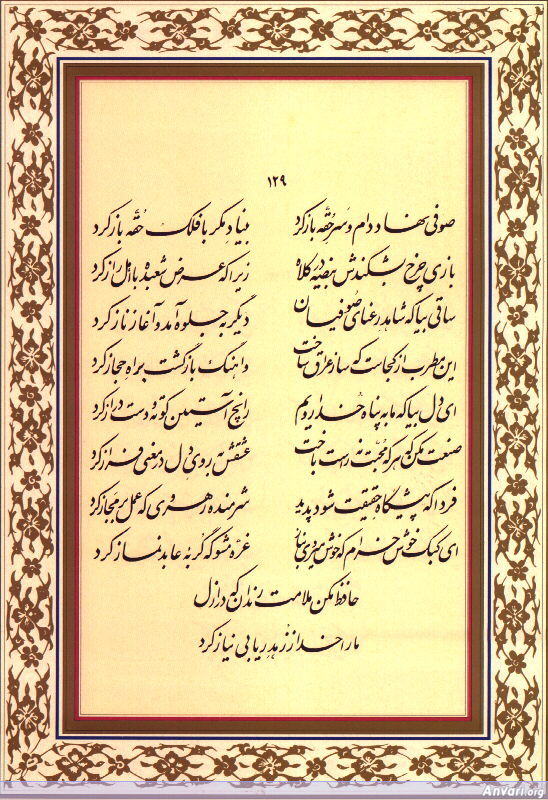 ۱۲۹
صوفی نهاد دام و سر حقه باز کرد بنیاد مکر با فلک حقه باز کرد
بازی چرخ بشکندش بیضه در کلاه زیرا که عرض شعبده با اهل راز کرد
ساقی بیا که شاهد رعنای صوفیان دیگر به جلوه آمد و آغاز ناز کرد
این مطرب از کجاست که ساز عراق ساخت و آهنگ بازگشت به راه حجاز کرد
ای دل بیا که ما به پناه خدا رویم زآنچ آستین کوته و دست دراز کرد
صنعت مکن که هر که محبت نه راست باخت عشقش به روی دل در معنی فراز کرد
فردا که پیشگاه حقیقت شود پدید شرمنده رهروی که عمل بر مجاز کرد
ای کبک خوش خرام که خوش می‌روی به ناز غره مشو که گربه عابد نماز کرد
حافظ مکن ملامت رندان که در ازل
ما را خدا ز زهد ریا بی نیاز کرد
Anvari.org